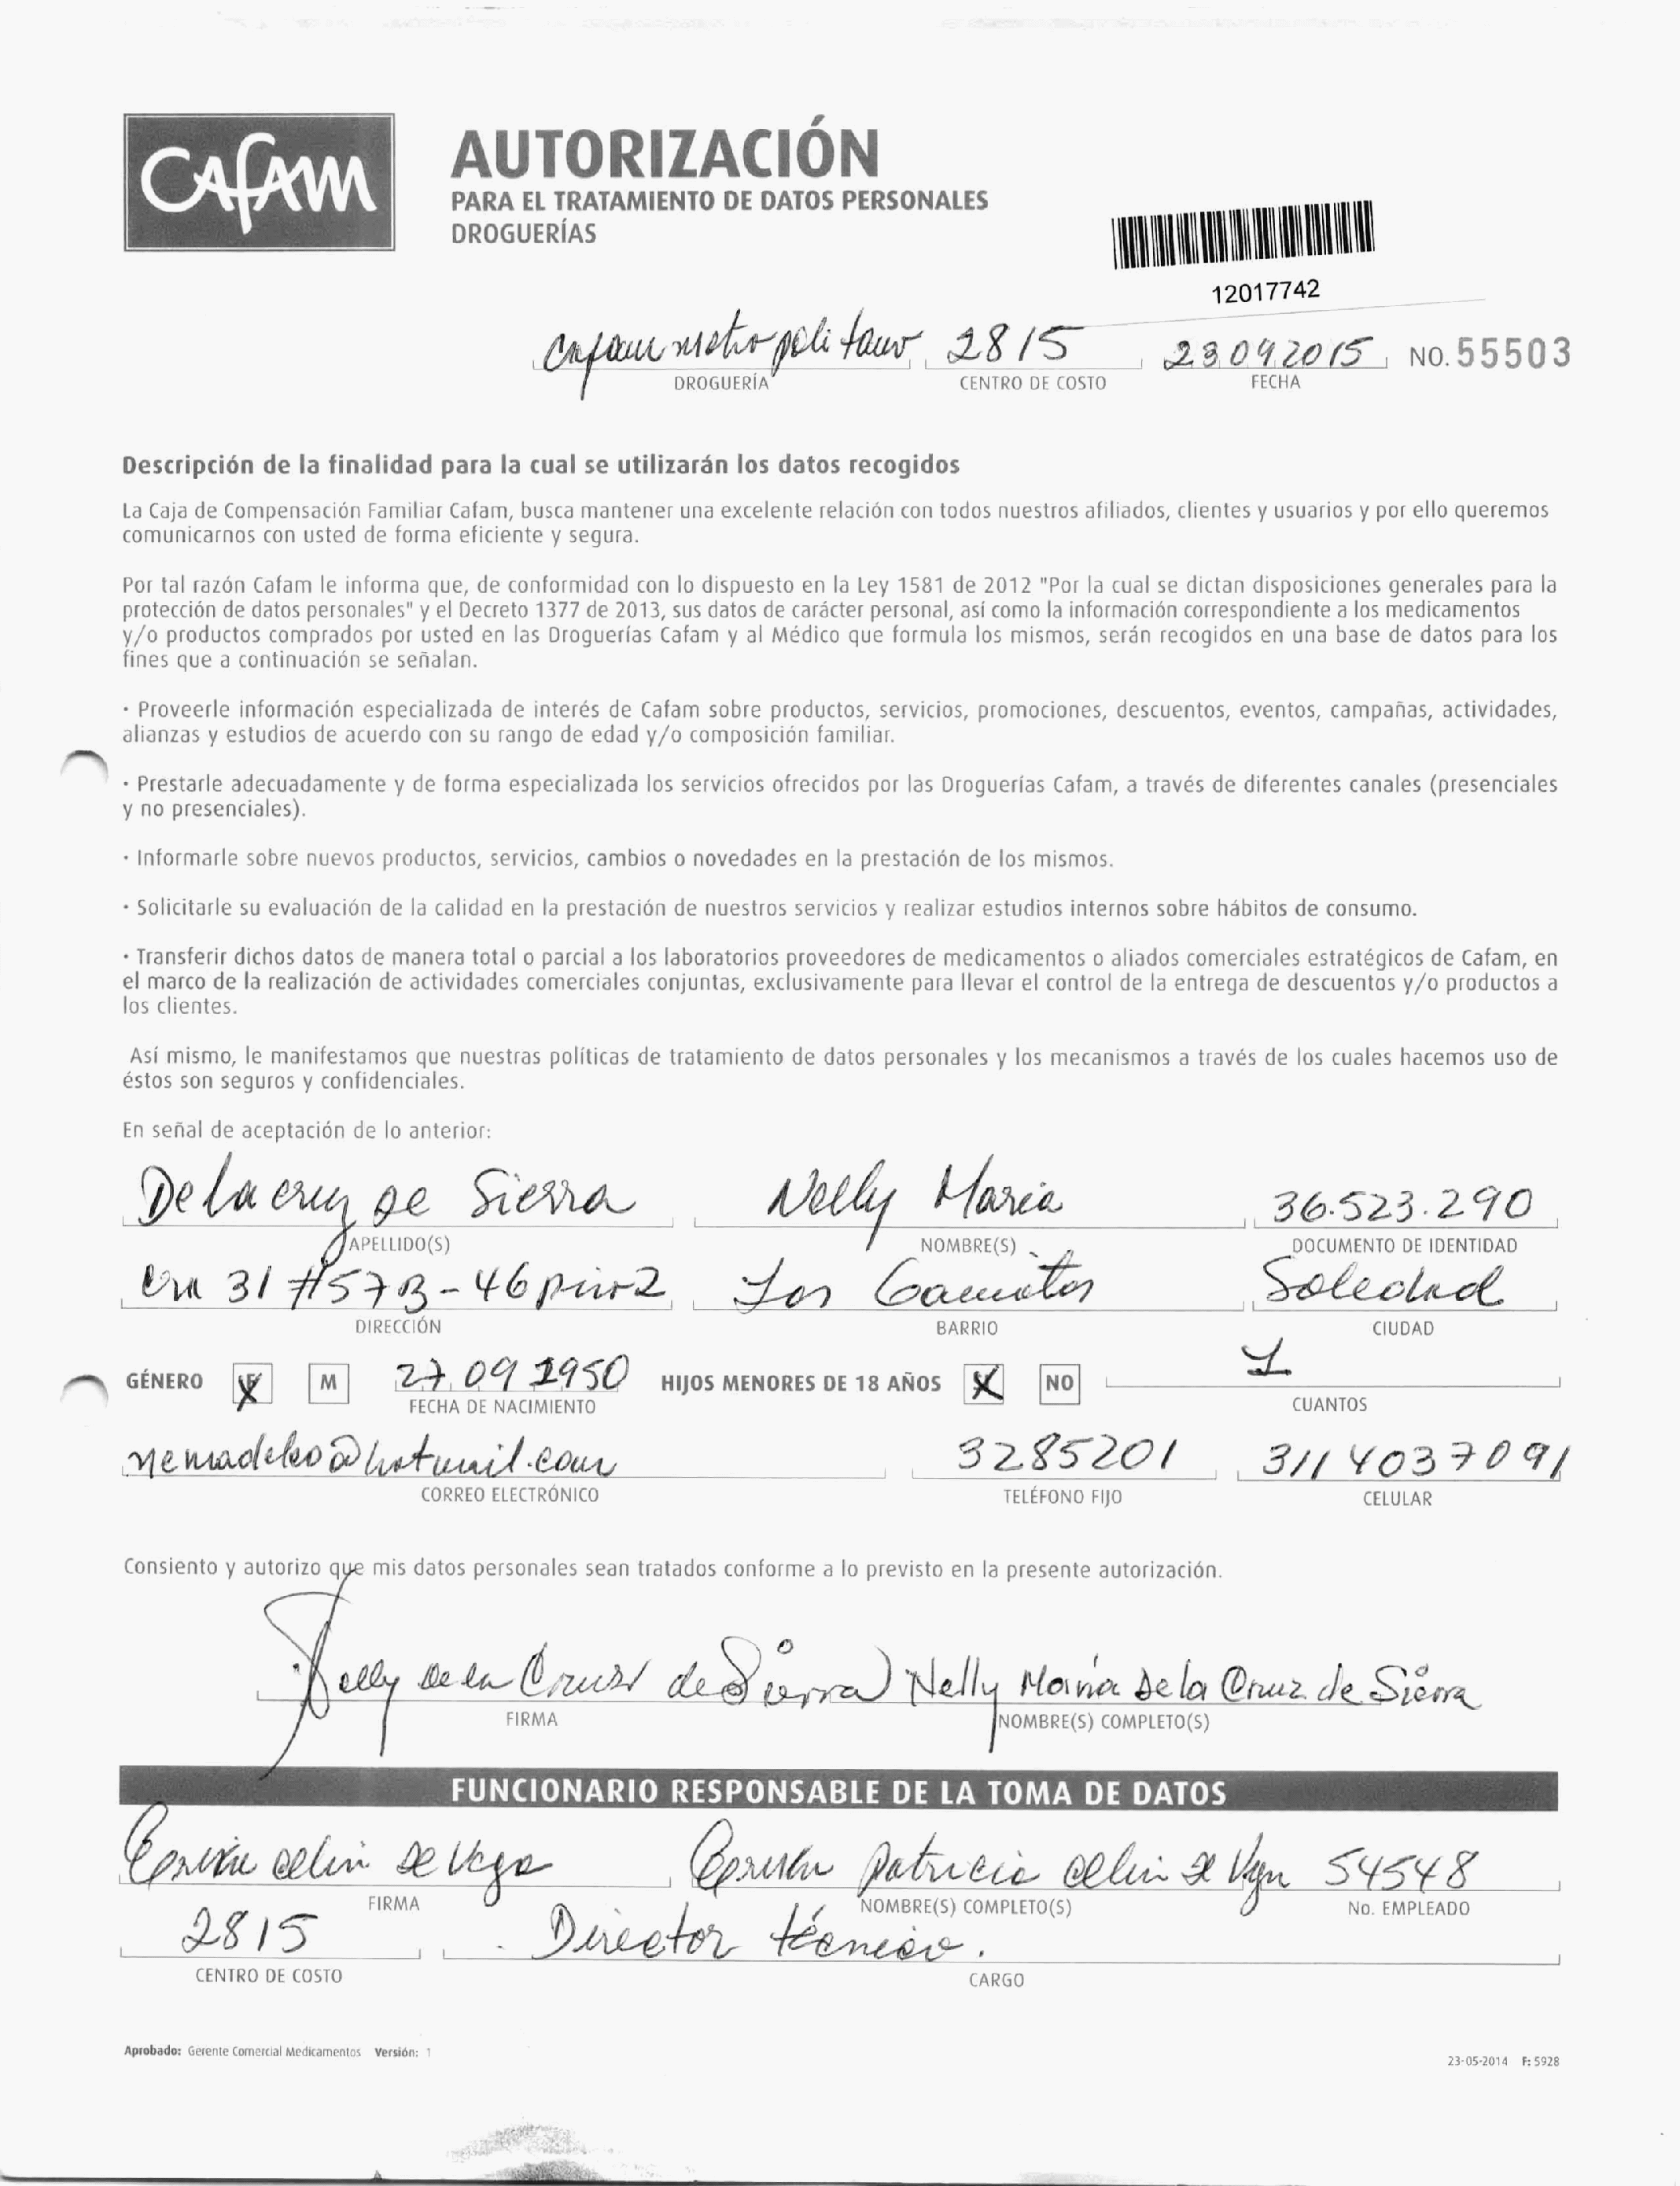 CAFAM
AUTORIZACIÓN
PARA EL TRATAMIENTO DE DATOS PERSONALES
DROGUERÍAS
12017742
Cafam metropolitano 2815 23 09 2015 NO. 55503
DROGUERÍA CENTRO DE COSTO FECHA
Descripción de la finalidad para la cual se utilizarán los datos recogidos
La Caja de Compensación Familiar Cafam, busca mantener una excelente relación con todos nuestros afiliados, clientes y usuarios y por ello queremos
comunicarnos con usted de forma eficiente y segura.
Por tal razón Cafam le informa que, de conformidad con lo dispuesto en la Ley 1581 de 2012 "Por la cual se dictan disposiciones generales para la
protección de datos personales" y el Decreto 1377 de 2013, sus datos de carácter personal, así como la información correspondiente a los medicamentos
y/o productos comprados por usted en las Droguerías Cafam y al Médico que formula los mismos, serán recogidos en una base de datos para los
fines que a continuación se señalan.
· Proveerle información especializada de interés de Cafam sobre productos, servicios, promociones, descuentos, eventos, campañas, actividades,
alianzas y estudios de acuerdo con su rango de edad y/o composición familiar.
· Prestarle adecuadamente y de forma especializada los servicios ofrecidos por las Droguerías Cafam, a través de diferentes canales (presenciales
y no presenciales).
· Informarle sobre nuevos productos, servicios, cambios o novedades en la prestación de los mismos.
· Solicitarle su evaluación de la calidad en la prestación de nuestros servicios y realizar estudios internos sobre hábitos de consumo.
· Transferir dichos datos de manera total o parcial a los laboratorios proveedores de medicamentos o aliados comerciales estratégicos de Cafam, en
el marco de la realización de actividades comerciales conjuntas, exclusivamente para llevar el control de la entrega de descuentos y/o productos a
los clientes.
Así mismo, le manifestamos que nuestras políticas de tratamiento de datos personales y los mecanismos a través de los cuales hacemos uso de
éstos son seguros y confidenciales.
En señal de aceptación de lo anterior:
De la cruz de Sierra Nelly Maria 36.523.290
APELLIDO(S) NOMBRE(S) DOCUMENTO DE IDENTIDAD
Cra 31 #57B-46 piso 2 Los Soledad
DIRECCIÓN BARRIO CIUDAD
GÉNERO X M 27 09 1950 HIJOS MENORES DE 18 AÑOS X NO 1
FECHA DE NACIMIENTO CUANTOS
3285201 311 4037091
CORREO ELECTRÓNICO TELÉFONO FIJO CELULAR
Consiento y autorizo que mis datos personales sean tratados conforme a lo previsto en la presente autorización.
Nelly de la Cruz de Sierra Nelly María De la Cruz de Sierra
FIRMA NOMBRE(S) COMPLETO(S)
FUNCIONARIO RESPONSABLE DE LA TOMA DE DATOS
celin de Vega patricia celin de Vega 54548
FIRMA NOMBRE(S) COMPLETO(S) No. EMPLEADO
2815 Director técnico.
CENTRO DE COSTO CARGO
Aprobado: Gerente Comercial Medicamentos Versión: 1
23-05-2014 F: 5928